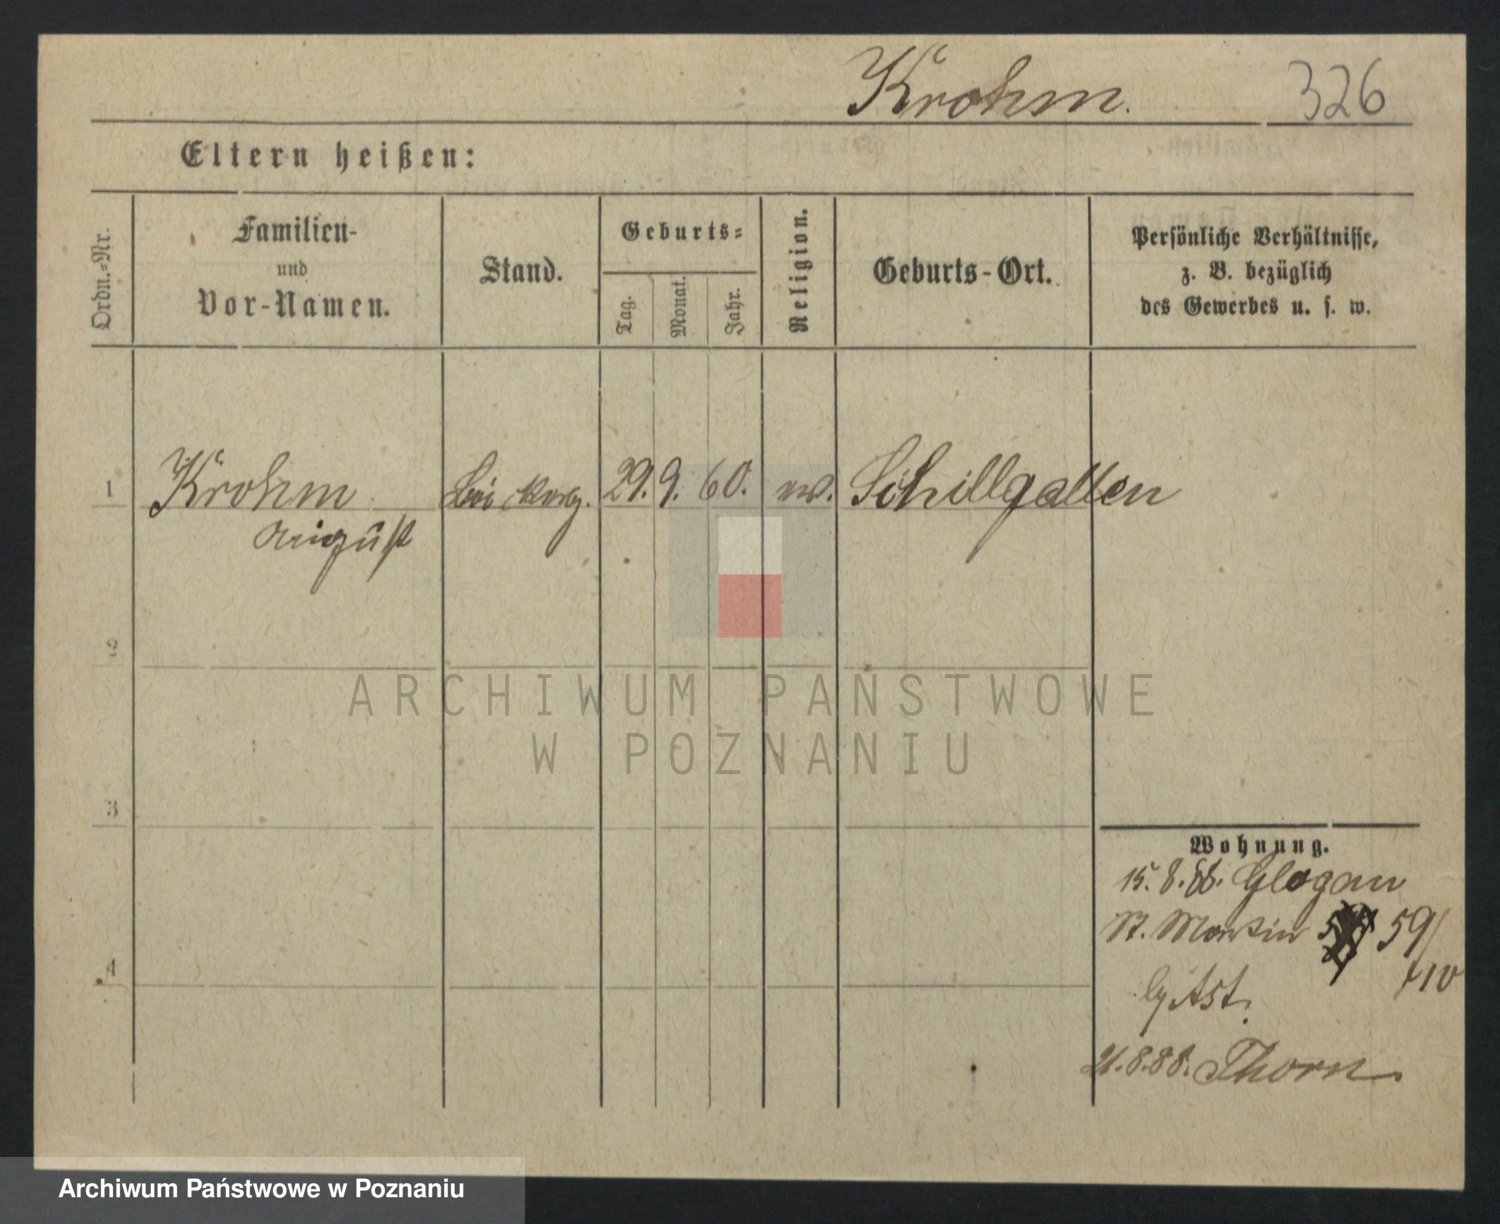 Krohm. 326
Eltern heißen:
Ordn.-Nr.
Familien-
und
Vor-Namen.
Stand.
Geburts-
Tag.
Monat.
Jahr.
Religion.
Geburts-Ort.
Persönliche Verhältnisse,
z. B. bezüglich
des Gewerbes u. s. w.
1 Krohm 29. 9. 60. ev. Schillgallen
August
2
3
4
Wohnung.
15. 8. 88. Glogau
St. Martin 59/
21.8.88. Thorn.
ARCHIWUM PAŃSTWOWE
W POZNANIU
Archiwum Państwowe w Poznaniu